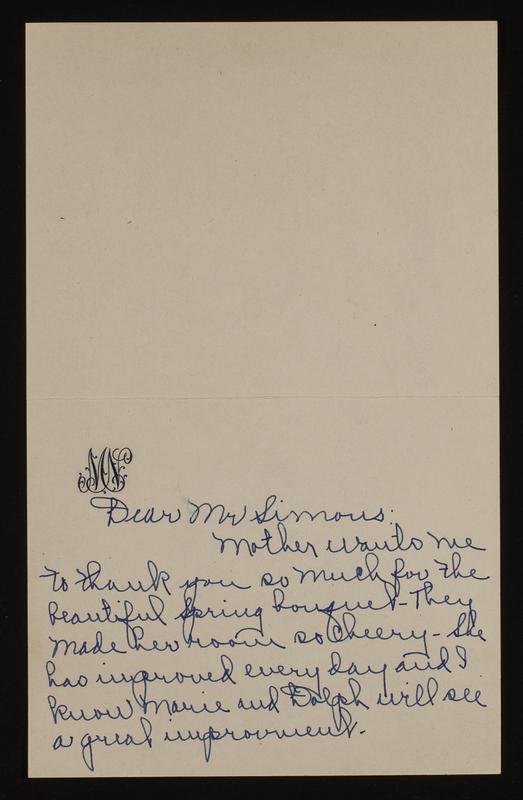 Dear Mr Simons:
Mother wants me
to thank you so much for the
beautiful spring bouquet - They
made her room so cheery - She
has improved every day and I
know Marie and Dolph will see
a great improvment.